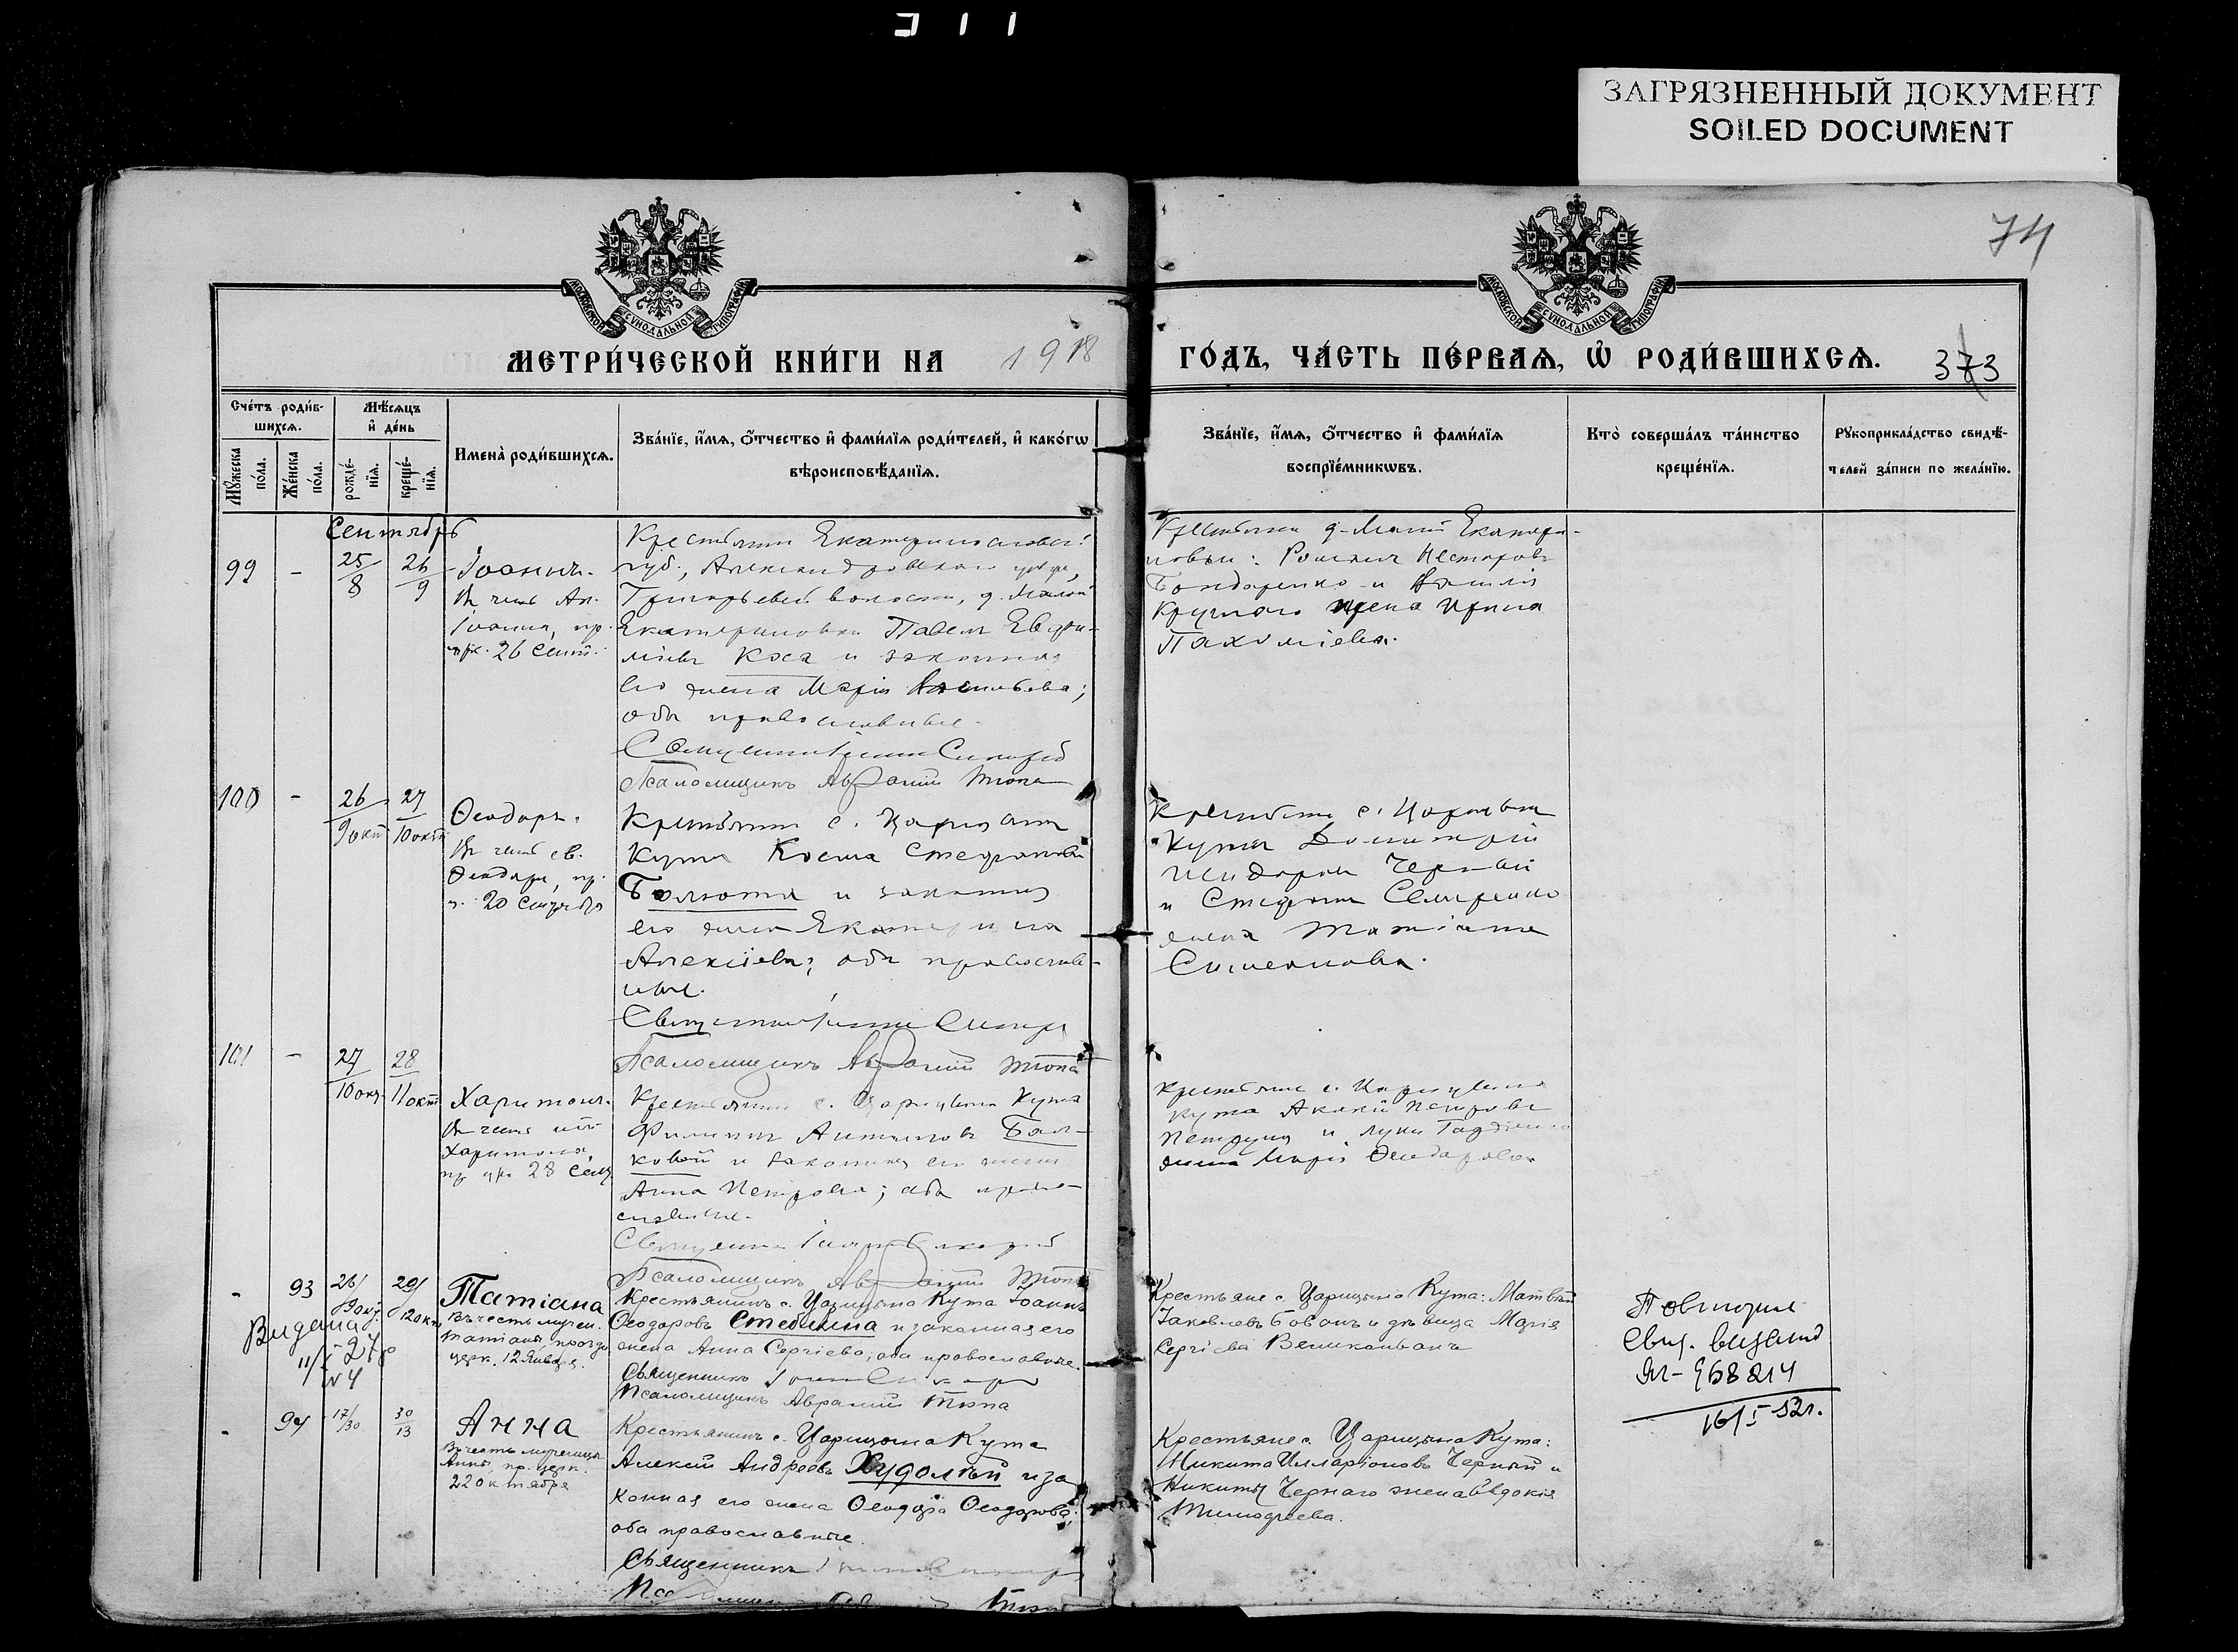 311
ЗАГРЯЗНЕННЫЙ ДОКУМЕНТ
SOILED DOCUMENT
74
МОСКОВСКОЙ СѴНОДАЛЬНОЙ ТИПОГРАФІИ
МОСКОВСКОЙ СѴНОДАЛЬНОЙ ТИПОГРАФІИ
МЕТРИ́ЧЕСКОЙ КНИ́ГИ НА 1918
ГО́ДЪ, ЧА́СТЬ ПЕ́РВАѦ, Ѡ҆ РОДИ́ВШИХСѦ. 373
Сче́тъ роди́в-
шихсѧ.
Мꙋ́жеска по́ла.
Же́нска по́ла.
Мѣ́сѧцъ
и҆ де́нь
рожде́-
нїѧ.
креще́-
нїѧ.
Имена̀ роди́вшихсѧ.
Зва́нїе, и҆́мѧ, ѻ҆́тчество и҆ фами́лїѧ роди́телей, и҆ како́гѡ
вѣроисповѣ́данїѧ.
Зва́нїе, и҆́мѧ, ѻ҆́тчество и҆ фами́лїѧ
воспрїе́мникѡвъ.
Кто̀ соверша́лъ та́инство
креще́нїѧ.
Рꙋкоприкла́дство свидѣ́-
телей за́писи по жела́нїю.
Сентябрь
99 - 25/8 26/9
Іоаннъ.
Въ честь Ап.
Іоанна, пр.
26 Сент.
Крестьянинъ Екатеринослав.
губ., Александровскаго уѣзда,
Григорьевой волости, д. Малой
Екатериновки Павелъ Евфи-
міевъ Коса и законная
его жена Марія Васильева;
оба православные.
Священникъ
Псаломщикъ Авраамій Тюпа
Крестьяне д. Малой Екатери-
новки: Романъ Несторовъ
Бондаренко и Василія
Круглаго жена Ирина
Пахоміева.
100 - 26/9 окт 27/10 окт
Ѳеодоръ.
Въ честь св.
Ѳеодора, пр.
20 Сентября
Крестьянинъ с. Царицына
Кута Косма Стефановъ
Болюта и законная
его жена Екатерина
Алексіева; оба православ-
ные.
Священникъ
Псаломщикъ Авраамій Тюпа
Крестьяне с. Царицына
Кута Димитрій
Черный
и Стефана
жена Татіана
Симеонова.
101 - 27/10 окт 28/11 окт
Харитонъ.
Въ честь
Харитона,
пр. 28 Сент
Крестьянинъ с. Царицына Кута
Филиппъ Бал-
ковой и законная его жена
Анна Петрова; оба право-
славные.
Священникъ
Псаломщикъ Авраамій Тюпа
Крестьяне с. Царицына
Кута Акакій Петровъ
и Луки
жена Марія Ѳеодорова
- 93 26/9 окт 29/12 окт
Татіана
Въ честь мучен.
Татіаны, празд.
церк. 12 Января.
Видана
11/I 27 г
N 4
Крестьянинъ с. Царицына Кута Іоаннъ
Ѳеодоровъ Стеблина и законная его
жена Анна Сергіева; оба православные.
Священникъ
Псаломщикъ Авраамій Тюпа
Крестьяне с. Царицына Кута: Матвѣй
Іаковлевъ Бованъ и дѣвица Марія
Сергіева
Повторне
свид. видано
968214
16/I 52 г.
- 94 17/30 30/13
Анна
Въ честь мученицы
Анны, пр. церк.
22 октября
Крестьянинъ с. Царицына Кута
Алексій Андреевъ Худолѣй и за
конная его жена Ѳеодора Ѳеодорова;
оба православные.
Священникъ
Крестьяне с. Царицына Кута:
Никита Илларіоновъ Черный и
Никиты Чернаго жена Евдокія
Тимофеева.